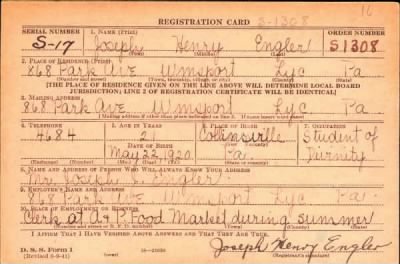 16
REGISTRATION CARD S-1308
SERIAL NUMBER 1. NAME (Print) ORDER NUMBER
S-17 Joseph Henry Engler S1308
(First) (Middle) (Last)
2. PLACE OF RESIDENCE (Print)
868 Park Ave Wmsport Lyc Pa
(Number and street) (Town, township, village, or city) (County) (State)
[THE PLACE OF RESIDENCE GIVEN ON THE LINE ABOVE WILL DETERMINE LOCAL BOARD
JURISDICTION; LINE 2 OF REGISTRATION CERTIFICATE WILL BE IDENTICAL]
3. MAILING ADDRESS
868 Park Ave Wmsport Lyc Pa
[Mailing address if other than place indicated on line 2. If same insert word same]
4. TELEPHONE 5. AGE IN YEARS 6. PLACE OF BIRTH 7. OCCUPATION
4684 21 Student of
DATE OF BIRTH (Town or county)
May 22, 1920 Pa.
(Exchange) (Number) (Mo.) (Day) (Yr.) (State or country)
8. NAME AND ADDRESS OF PERSON WHO WILL ALWAYS KNOW YOUR ADDRESS
Mr. Joseph Engler
9. EMPLOYER'S NAME AND ADDRESS
868 Park Ave Wmsport Lyc Pa.
10. PLACE OF EMPLOYMENT OR BUSINESS
Clerk at A & P Food Market during summer
(Number and street or R. F. D. number) (Town) (County) (State)
I AFFIRM THAT I HAVE VERIFIED ABOVE ANSWERS AND THAT THEY ARE TRUE.
D. S. S. Form 1
Joseph Henry Engler